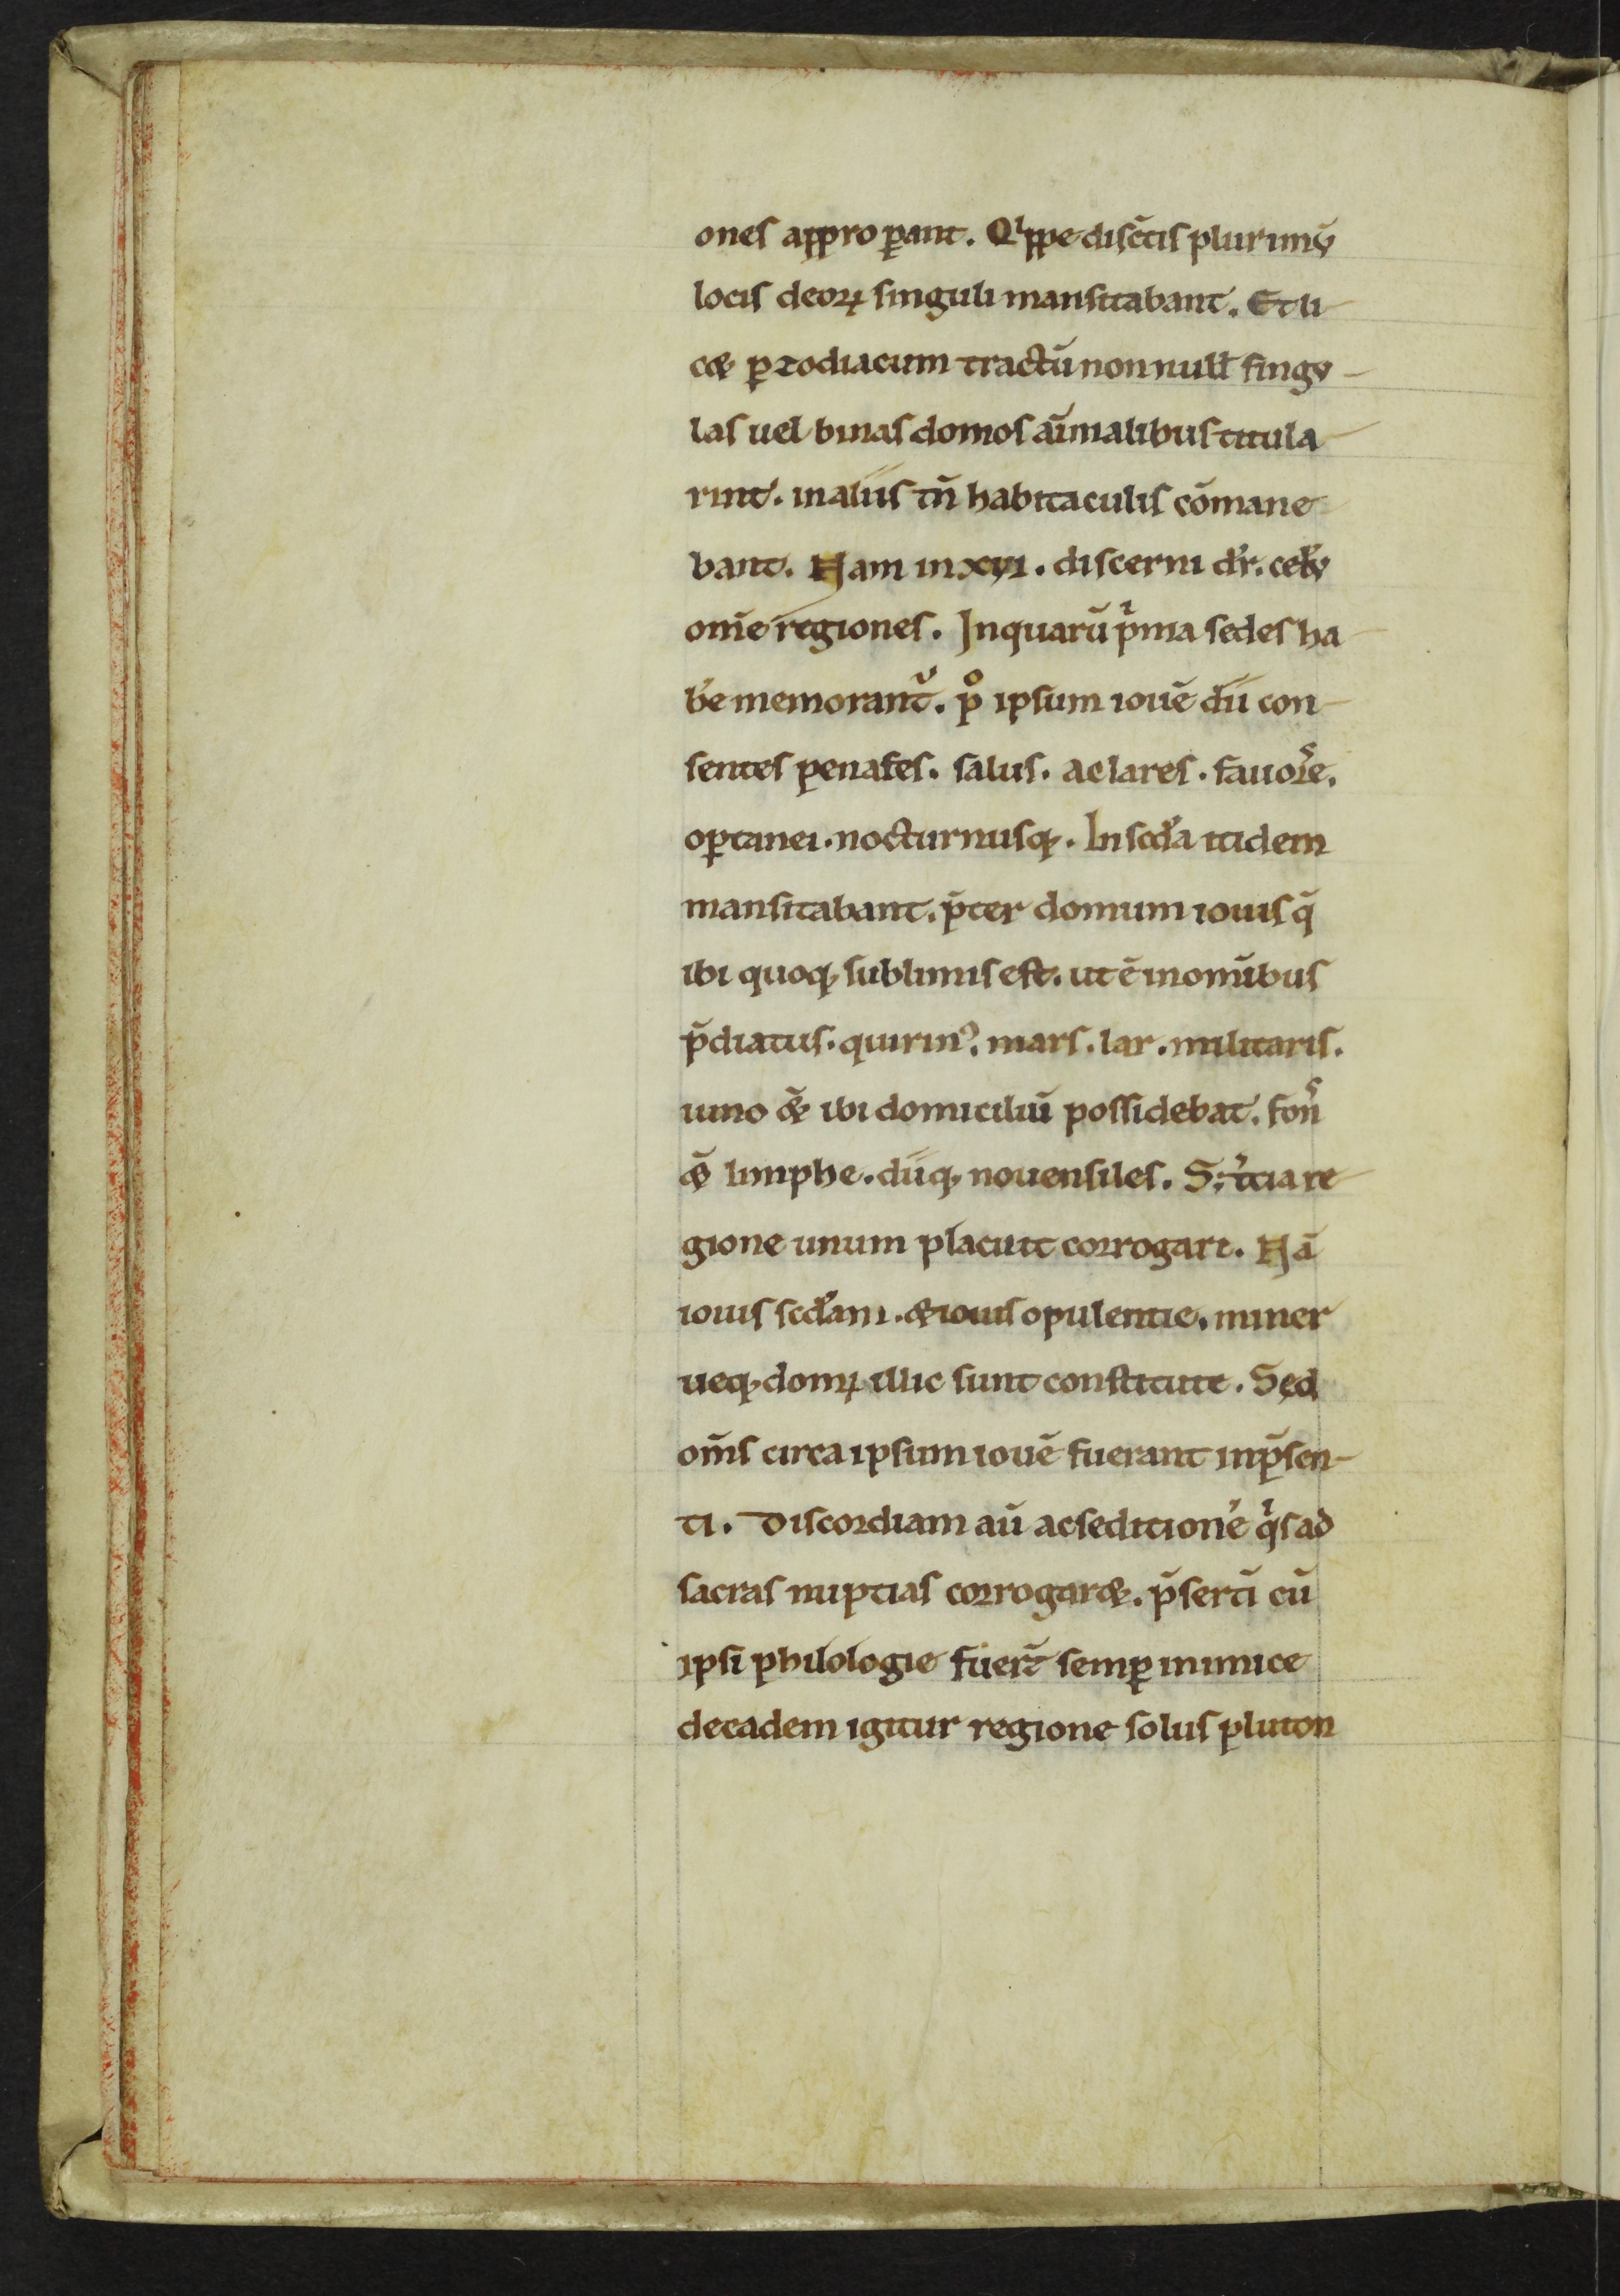 ones appro ꝑant. Qͥppe disc̄tis plurimū
locis deoꝝ singuli mansitabant. Et li-
c& ꝑ zodiacum tractū non null̄ singu-
las uel binas domos aīmalibus titula-
rint. in aliis tn̄ habitaculis cōmane-
bant. Nam in xvi. discerni dr̄. celū
om̄e regiones. In quarū pͥma sedes ha-
b̄e memorant᷑. pͦ ipsum ioue᷑ dii con-
sentes penates. salus. ac lares. fauorͤe.
oꝑtanei. nocturnusq;. In scd̓a itidem
mansitabant. p̄ter domum iouis q̄
ibi quoq; sublimis est. ut ē in om̄ibus
p̄diatus. quirinꝰ. mars. lar. militaris.
iuno &̄ ibi domiciliū possidebat. fonˢ
&̄ limphe. diiq; nouensiles. S; tͥcia re-
gione unum placuit corrogari. Nā
iouis scd̓ani. & iouis opulentie. miner
ueq; domꝝ illic sunt constitute. Sed
om̄s circa ipsum iouē fuerant in p̄sen-
ti. Discordiam au̅ ac seditionē qͥs ad
sacras nuptias corrogar&. p̄sertī cū
ipsi philologie fuer̄t semꝑ inimice
decadem igitur regione solus pluton